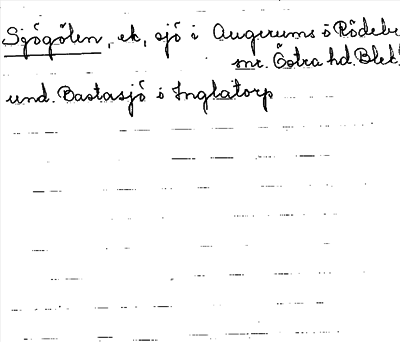 Sjögölen, ek, sjö i Augerums ö Rödeby
snr. Östra hd. Blek.
und. Bastasjö i Inglatorp